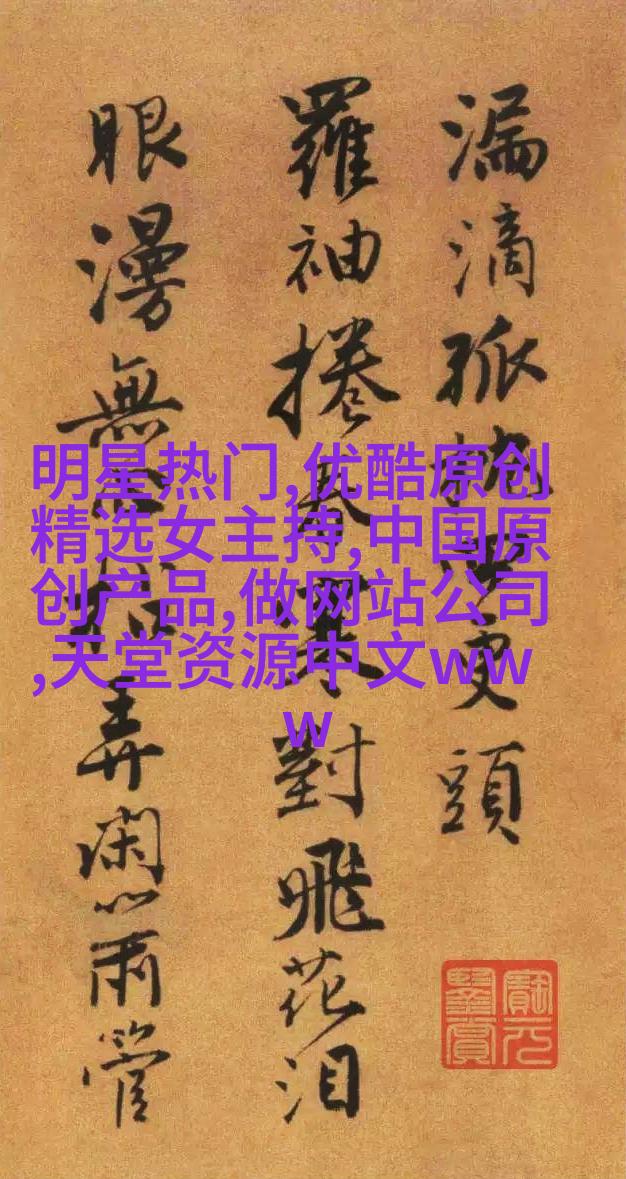 漏滴孤更頭
羅袖捲春寒對飛花泪
眼漫無弄閑心兩管
明星热门,优酷原创
精选女主持,中国原
创产品,做网站公司
,天堂资源中文ww
w